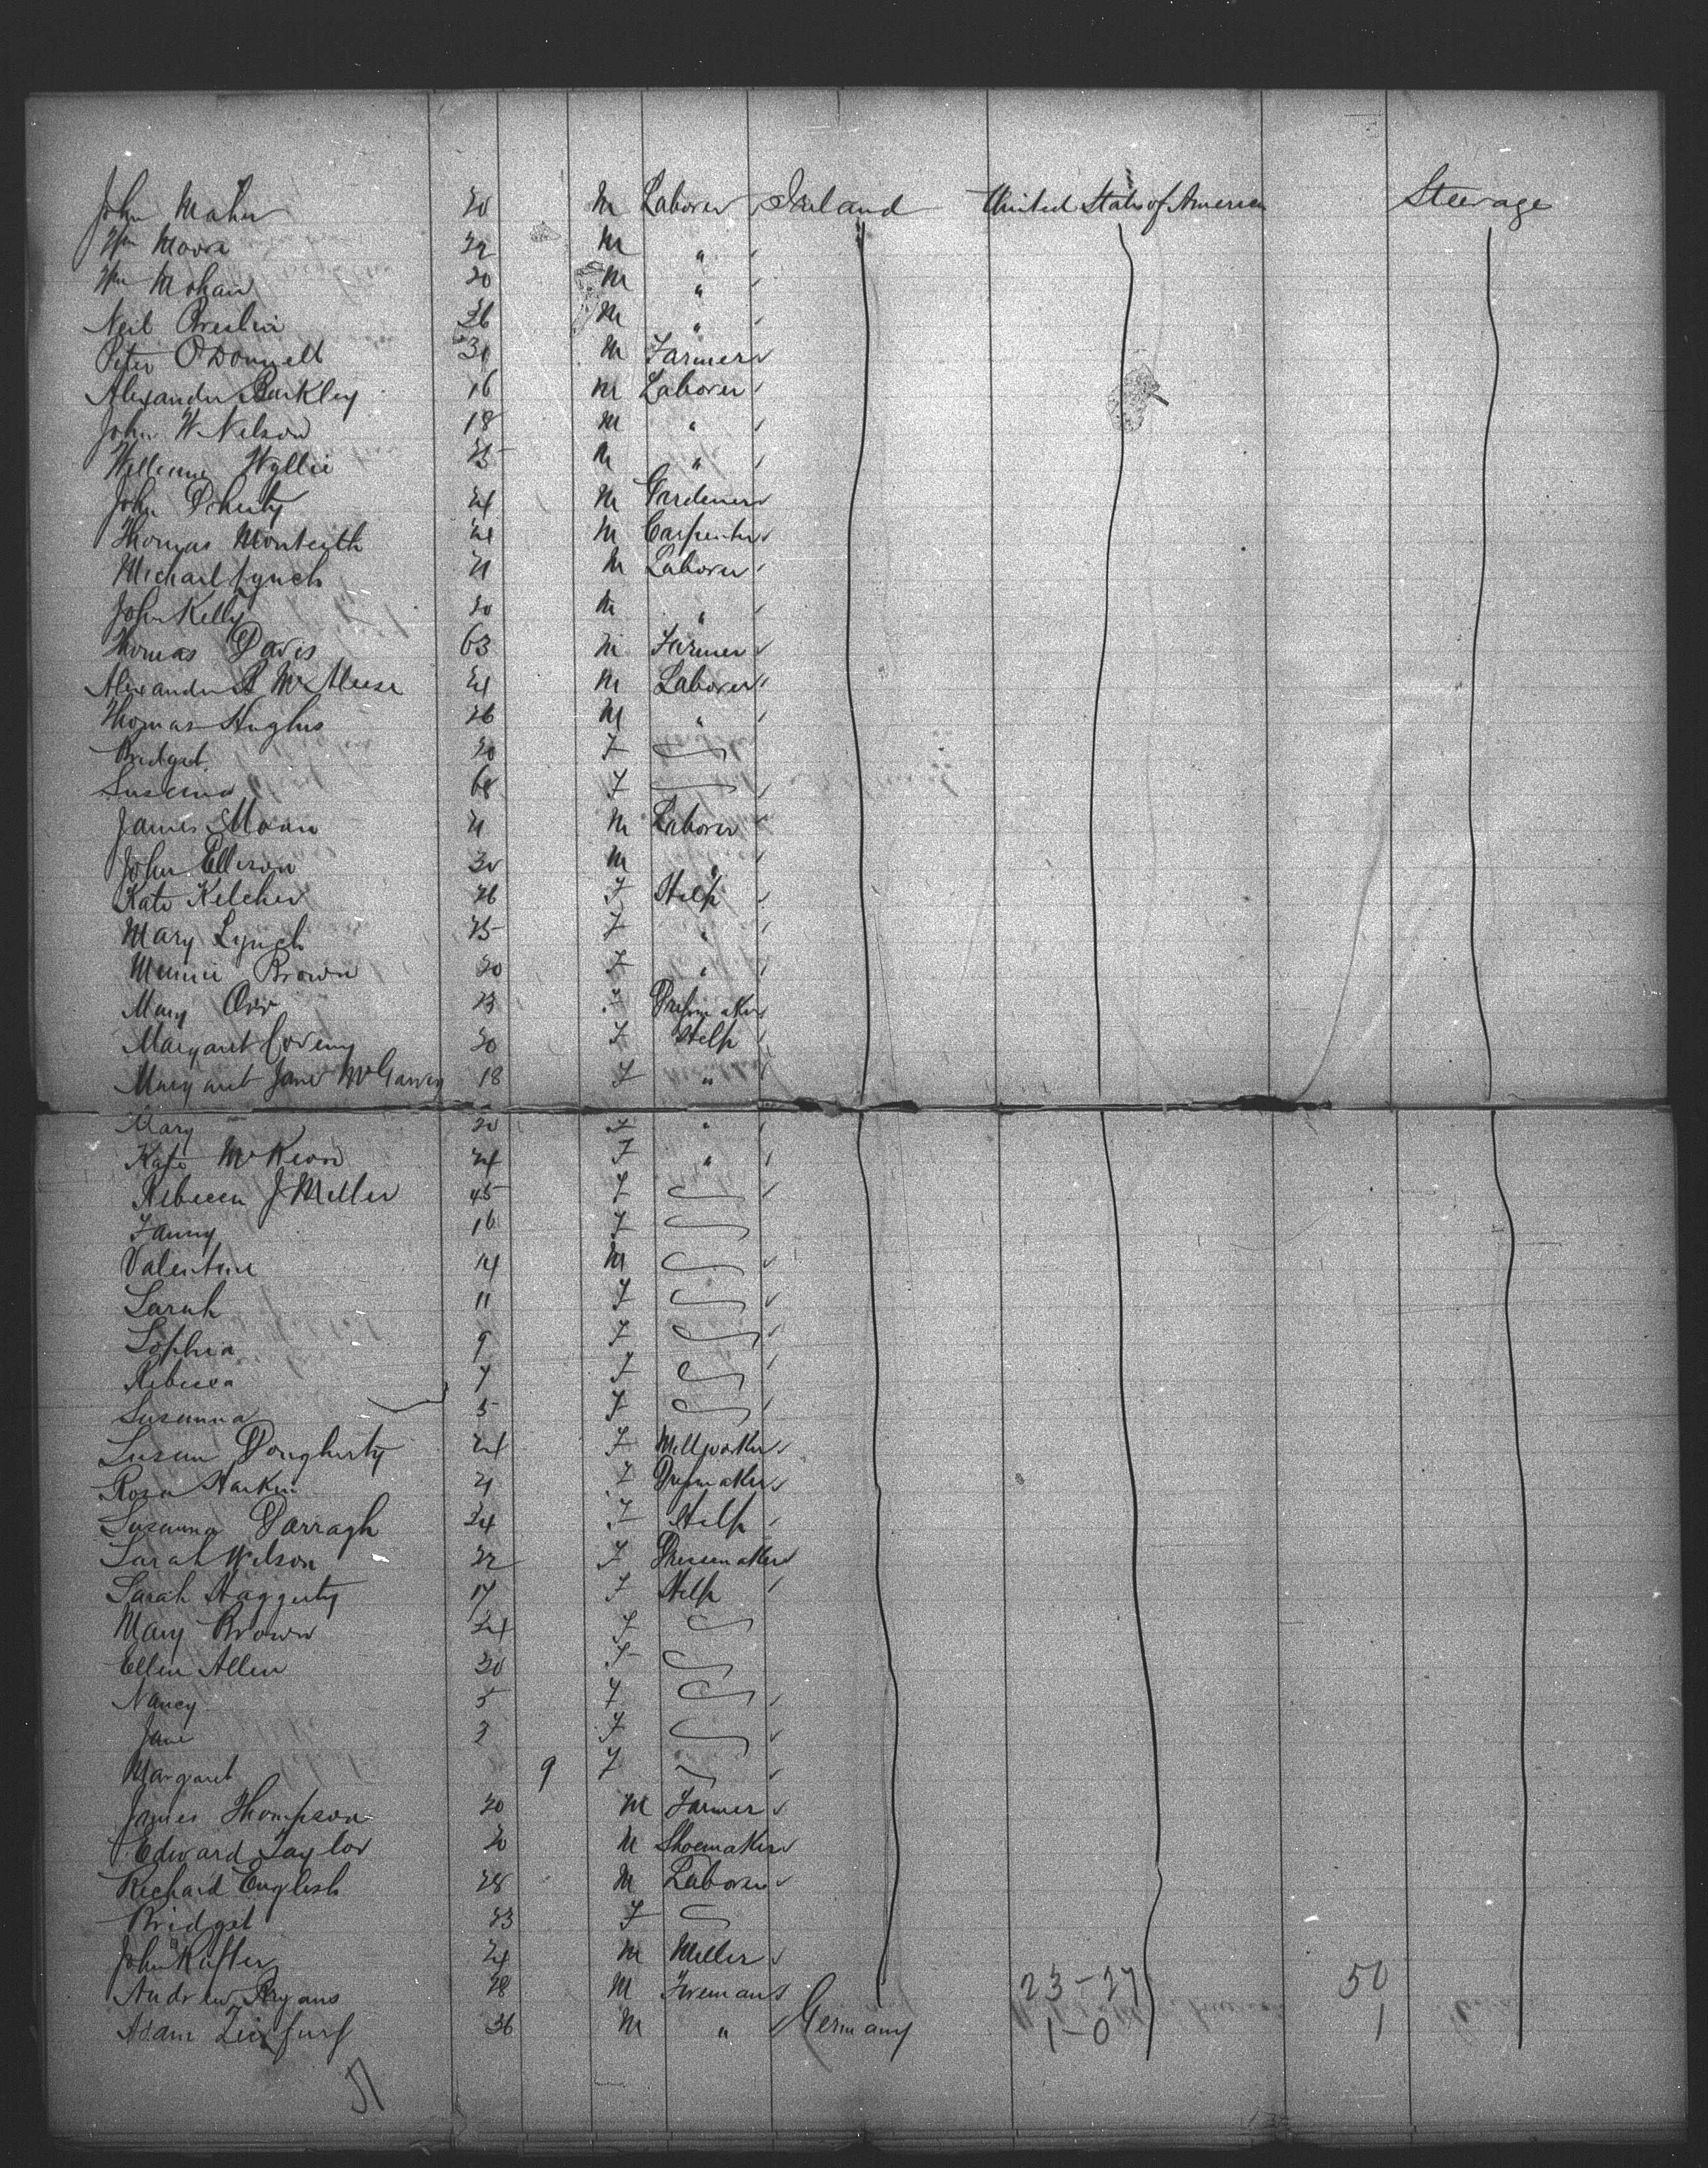 John Maher 20 M Laborer Ireland United States of America Steerage
Wm Moore 22 M "
Wm Mohan 20 M "
Neil Breslin 26 M "
Peter O'Donnell 31 M Farmer
Alexander Barkley 16 M Laborer
John W Nelson 18 M "
William Wyllie 25 M "
John Doherty 24 M Gardener
Thomas Monteith 24 M Carpenter
Michael Lynch 21 M Laborer
John Kelly 20 M "
Thomas Davis 63 M Farmer
Alexander B McAleese 24 M Laborer
Thomas Hughes 26 M "
Bridget 20 F
Susanna 68 F
James Moan 21 M Laborer
John Ellison 30 M "
Kate Kelcher 26 F Help
Mary Lynch 25 F "
Minnie Brown 20 F "
Mary Orr 23 F Dressmaker
Margaret Coveny 20 F Help
Margaret Jane McGarvey 18 F "
Mary 20 F "
Kate McKeon 24 F "
Rebecca J Miller 45 F
Fanny 16 F
Valentine 14 M
Sarah 11 F
Sophia 9 F
Rebecca 7 F
Susanna 5 F
Susan Dougherty 24 F Millworker
Rosa Harkin 21 F Dressmaker
Susanna Darragh 24 F Help
Sarah Wilson 22 F Dressmaker
Sarah Haggerty 17 F Help
Mary Brown 24 F
Ellen Allen 30 F
Nancy 5 F
Jane 3 F
Margaret 9 F
James Thompson 20 M Farmer
Edward Taylor 20 M Shoemaker
Richard English 28 M Laborer
Bridget 23 F
John Rafter 24 M Miller
Andrew Ryans 28 M Fireman 23-27 50
Adam 36 M " Germany 1-0 1
51